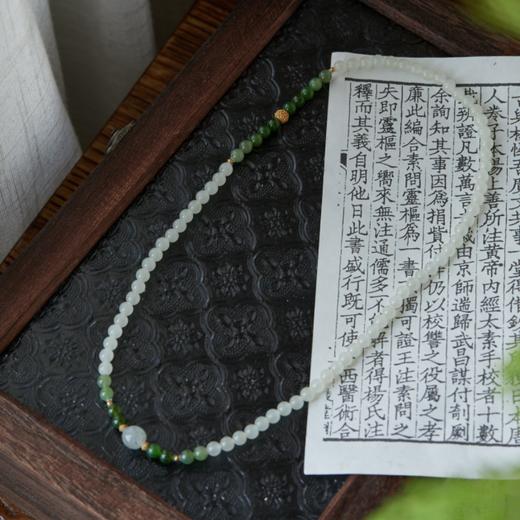 人卷子本易上善所注黃帝內經太素手校者十數
辨證凡數萬言由京師遄歸武昌謀付剞劂
余詢知其事因為捐貲仍以校讐之役屬之孝
廉此編合素問靈樞為一書獨可證王注素問之
失即靈樞之嚮來無注通儒多不者得楊氏注
釋而其義自明他日此書盛行既可使西醫術合